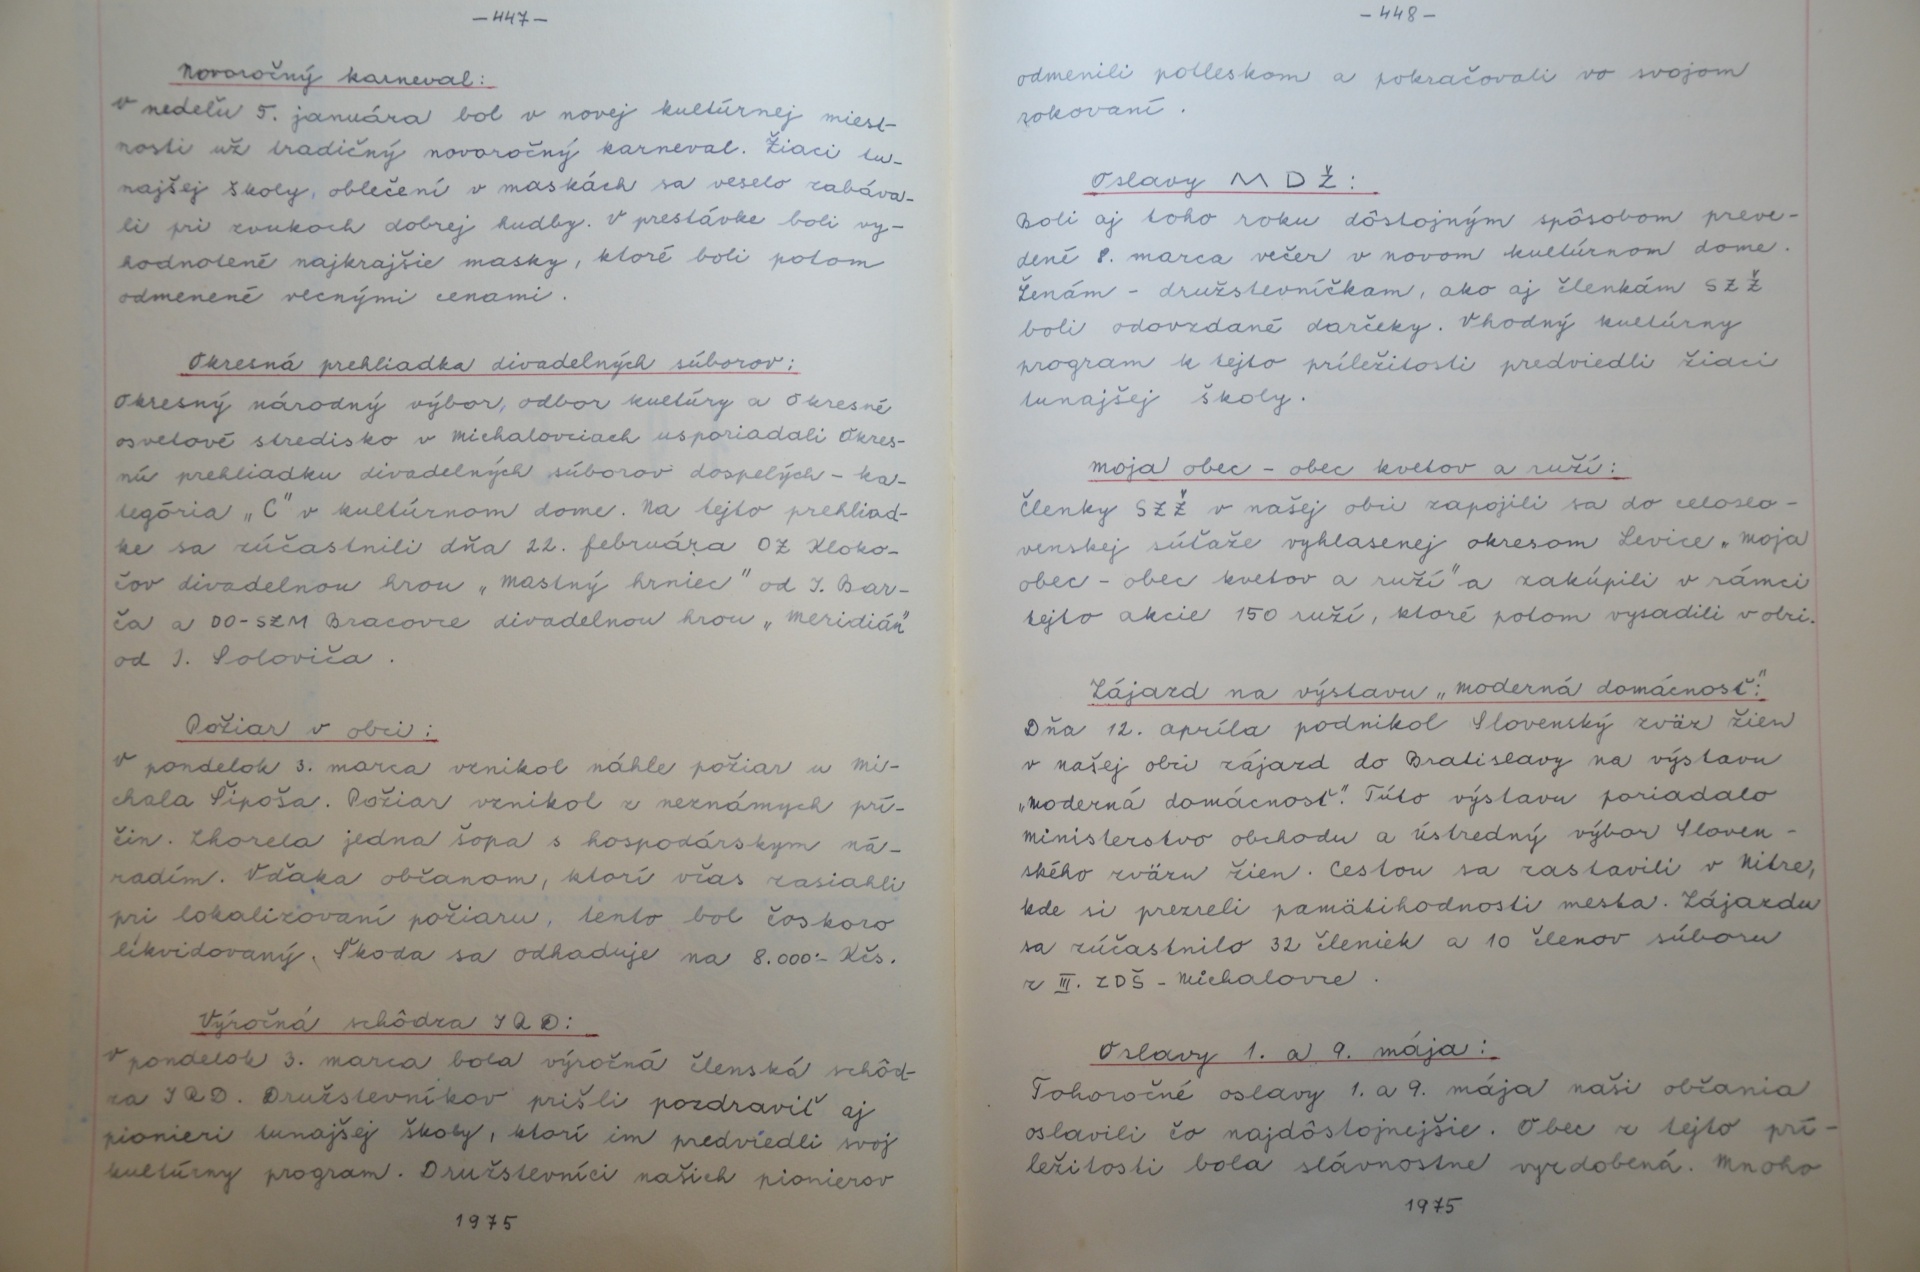 -447-
Novoročný karneval:
V nedeľu 5. januára bol v novej kultúrnej miest-
nosti už tradičný novoročný karneval. Žiaci tu-
najšej školy, oblečení v maskách sa veselo zabáva-
li pri zvukoch dobrej hudby. V prestávke boli vy-
hodnotené najkrajšie masky, ktoré boli potom
odmenené vecnými cenami.
Okresná prehliadka divadelných súborov:
Okresný národný výbor, odbor kultúry a Okresné
osvetové stredisko v Michalovciach usporiadali Okres-
nú prehliadku divadelných súborov dospelých - ka-
tegória „C" v kultúrnom dome. Na tejto prehliad-
ke sa zúčastnili dňa 22. februára OZ Kloko-
čov divadelnou hrou „Mastný hrniec" od J. Bar-
ča a DO-SZM Bracovce divadelnou hrou „Meridián"
od J. Soloviča.
Požiar v obci:
V pondelok 3. marca vznikol náhle požiar u Mi-
chala Šipoša. Požiar vznikol z neznámych prí-
čin. Zhorela jedna šopa s hospodárskym ná-
radím. Vďaka občanom, ktorí včas zasiahli
pri lokalizovaní požiaru, tento bol čoskoro
likvidovaný. Škoda sa odhaduje na 8.000.- Kčs.
Výročná schôdza JRD:
V pondelok 3. marca bola výročná členská schôd-
za JRD. Družstevníkov prišli pozdraviť aj
pionieri tunajšej školy, ktorí im predviedli svoj
kultúrny program. Družstevníci našich pionierov
1975
-448-
odmenili potleskom a pokračovali vo svojom
rokovaní.
Oslavy MDŽ:
Boli aj toho roku dôstojným spôsobom preve-
dené 8. marca večer v novom kultúrnom dome.
Ženám - družstevníčkam, ako aj členkám SZŽ
boli odovzdané darčeky. Vhodný kultúrny
program k tejto príležitosti predviedli žiaci
tunajšej školy.
Moja obec - obec kvetov a ruží:
Členky SZŽ v našej obci zapojili sa do celoslo-
venskej súťaže vyhlasenej okresom Levice „Moja
obec - obec kvetov a ruží" a zakúpili v rámci
tejto akcie 150 ruží, ktoré potom vysadili v obci.
Zájazd na výstavu „Moderná domácnosť":
Dňa 12. apríla podnikol Slovenský zväz žien
v našej obci zájazd do Bratislavy na výstavu
„Moderná domácnosť". Túto výstavu poriadalo
ministerstvo obchodu a ústredný výbor Sloven-
ského zväzu žien. Cestou sa zastavili v Nitre,
kde si prezreli pamätihodnosti mesta. Zájazdu
sa zúčastnilo 32 členiek a 10 členov súboru
z III. ZDŠ - Michalovce.
Oslavy 1. a 9. mája:
Tohoročné oslavy 1. a 9. mája naši občania
oslavili čo najdôstojnejšie. Obec z tejto prí-
ležitosti bola slávnostne vyzdobená. Mnoho
1975